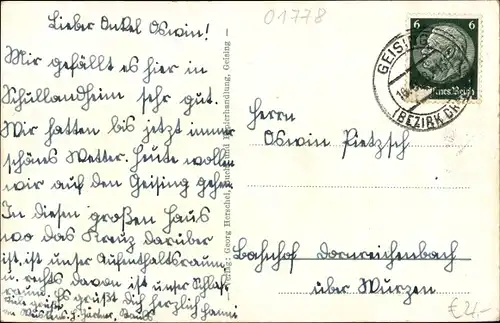 01778
Lieber Onkel Oswin!
Mir gefällt es hier in
Schullandheim sehr gut.
Wir hatten bis jetzt immer
schönes Wetter. Heute wollen
wir auf den Geising gehen.
In diesem großen Haus
wo das Kreuz darüber
ist, ist unser Aufenthaltsraum
u. rechts davon ist unser Schlaf-
raum. Es grüßt Dich herzlich Hanni
Viele Grüße
Georg Herschel, Buch- und Bilderhandlung, Geising
6 6
Deutsches Reich
GEISING
(BEZIRK DR
Herrn
Oswin Pietzsch
Bahnhof Dornreichenbach
über Wurzen
€ 2,-